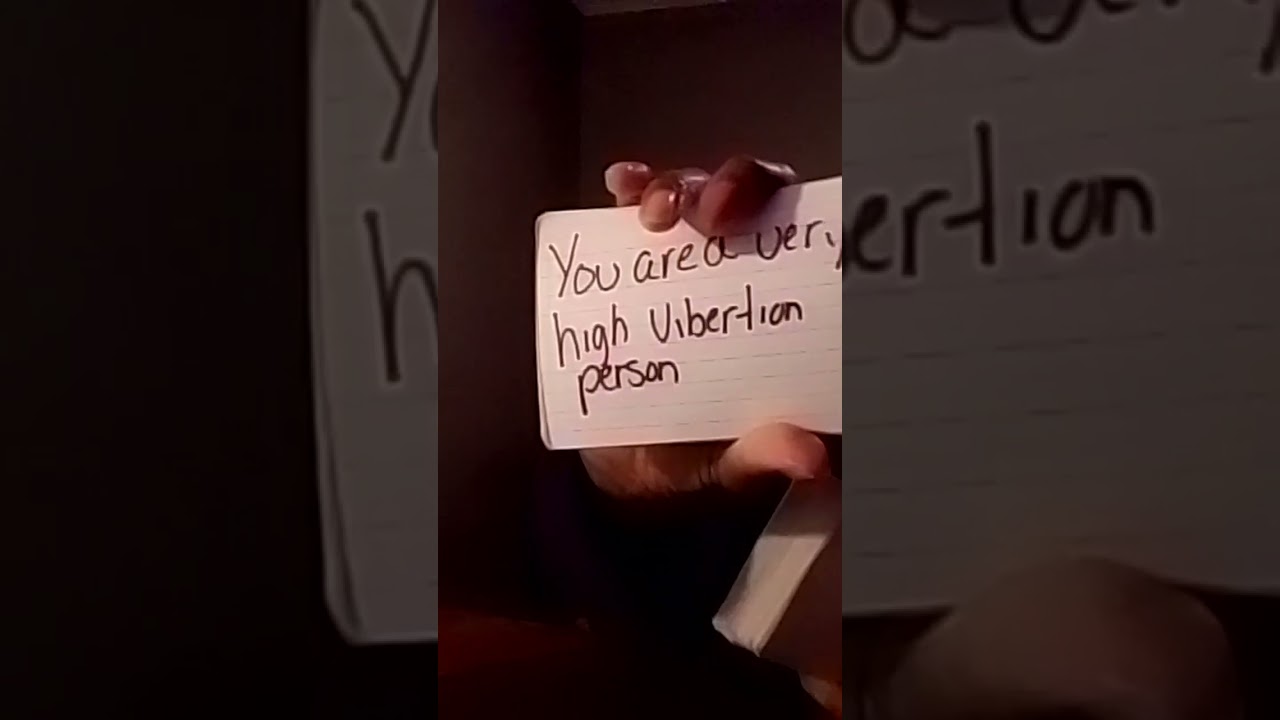 You are a very
high vibertion
person